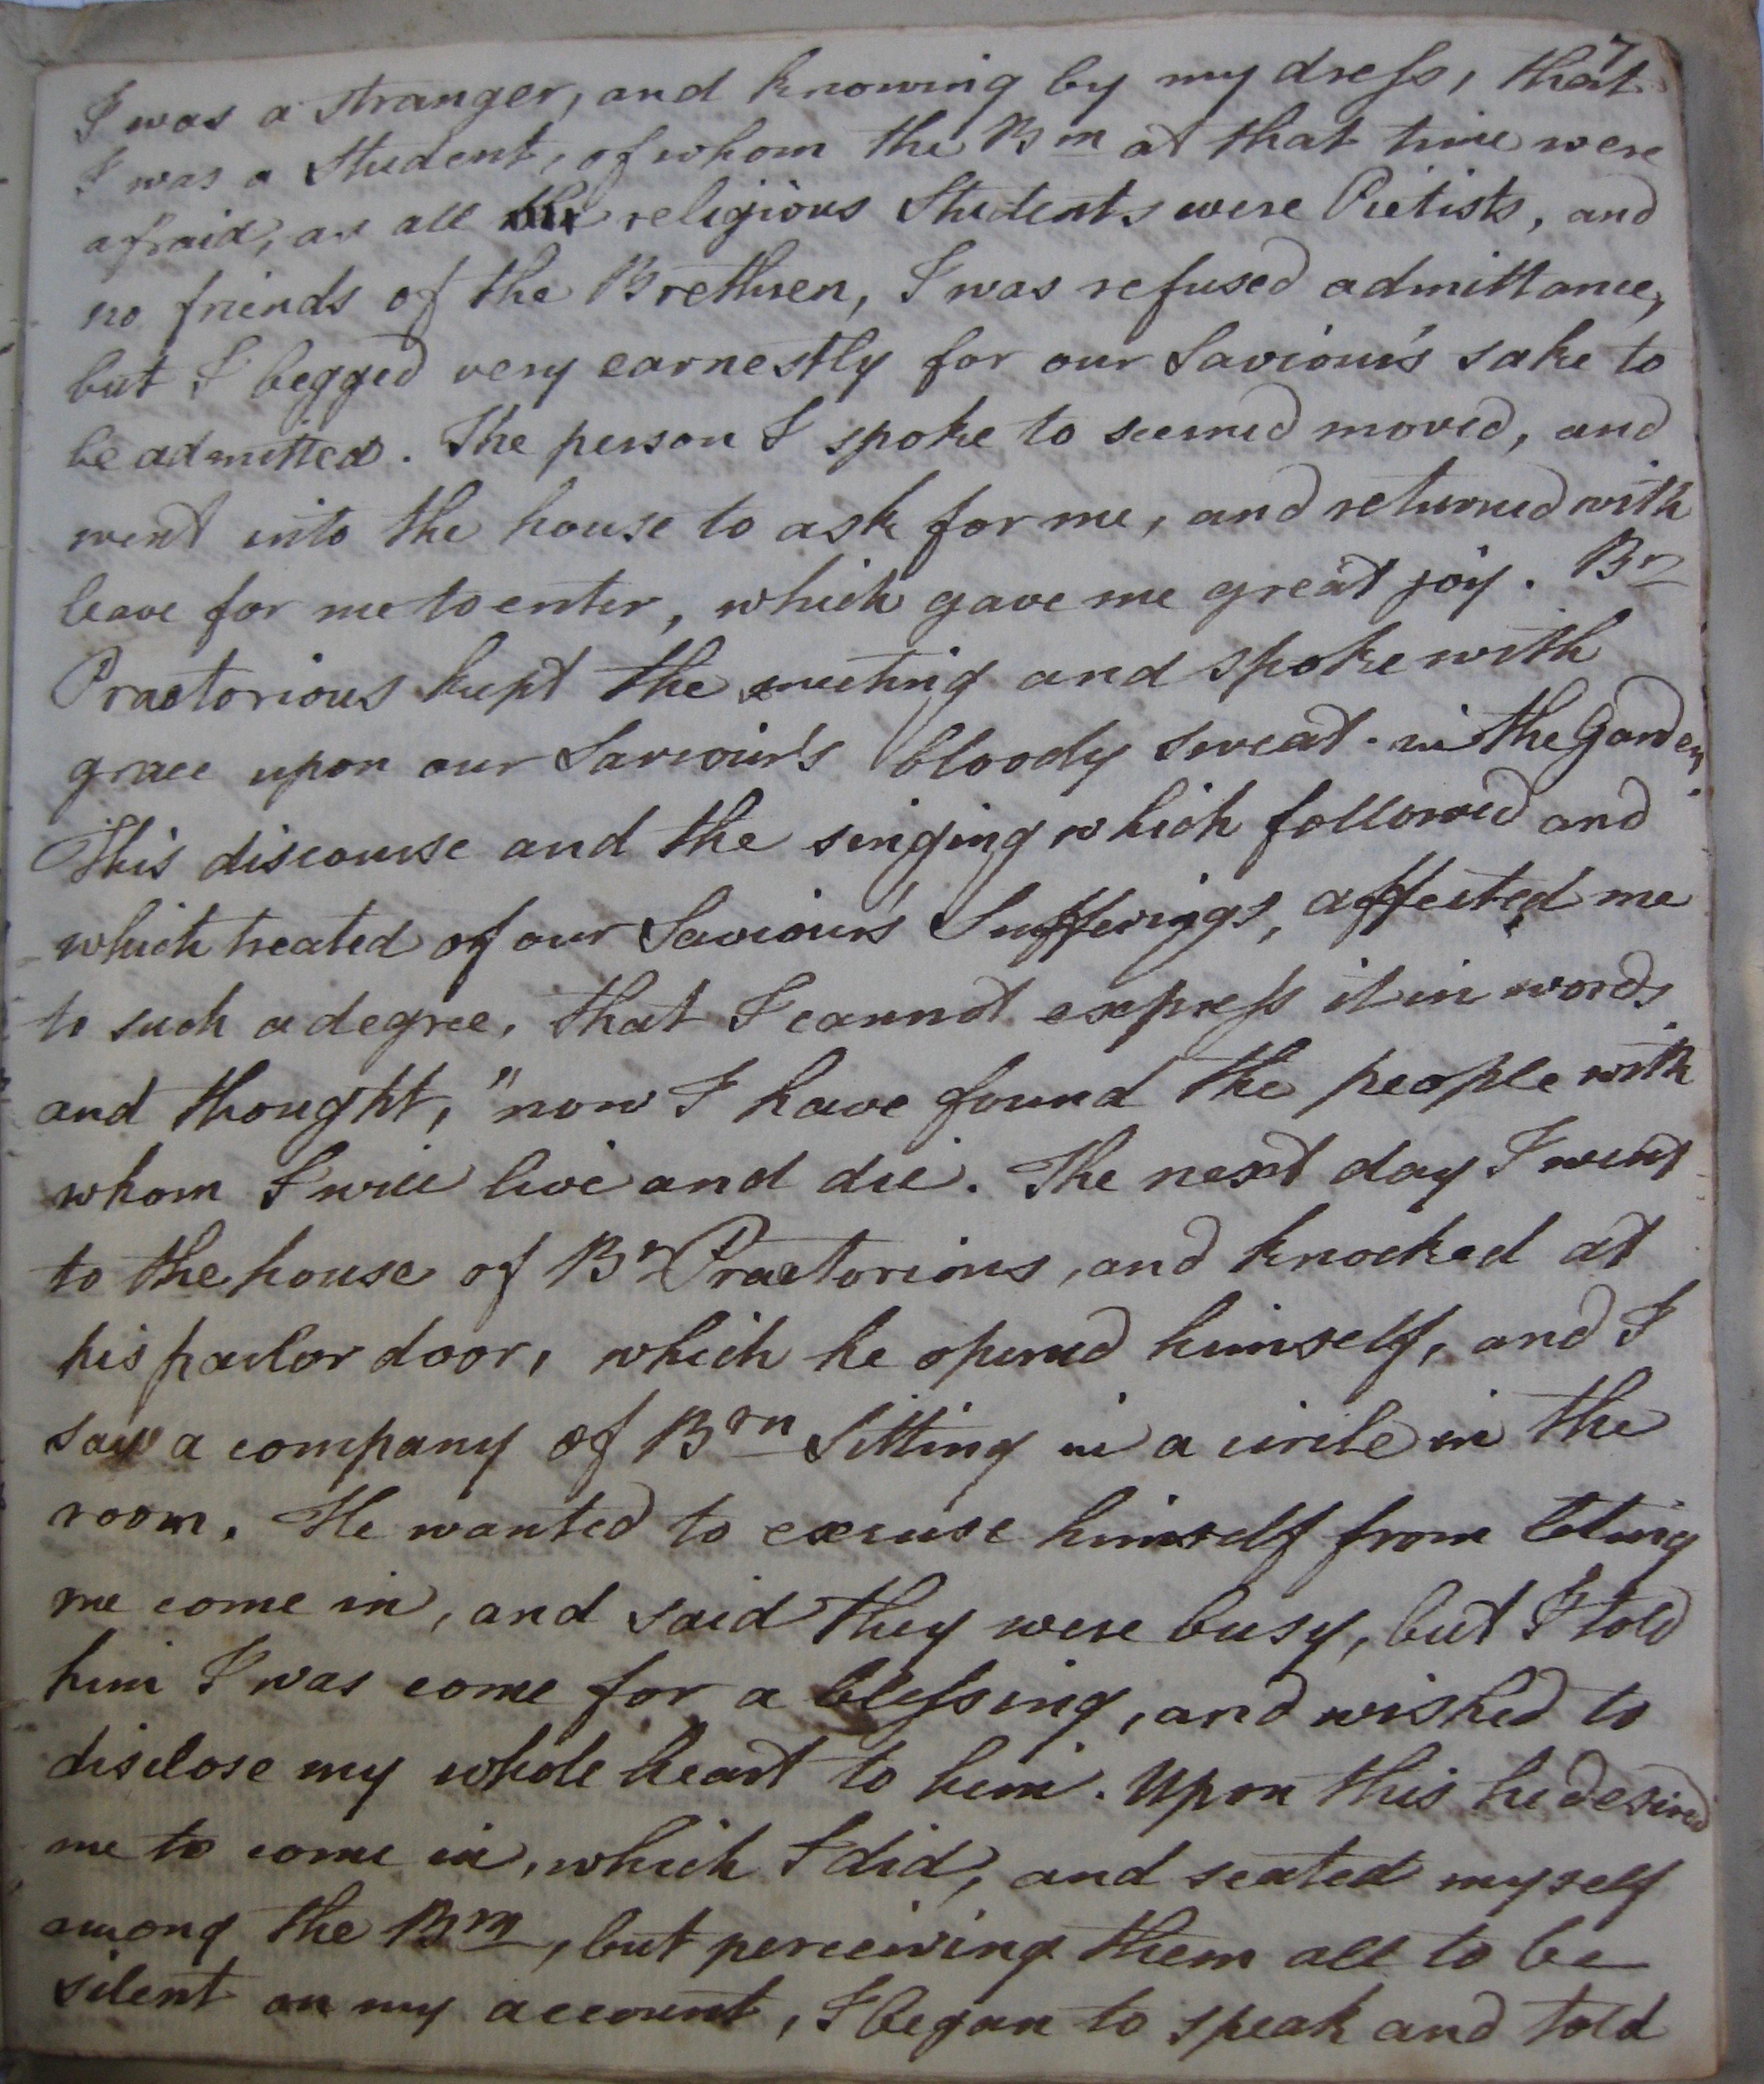 7
I was a stranger, and knowing by my dress, that
I was a Student, of whom the Brn at that time were
afraid, as all the religious Students were Pietists, and
no friends of the Brethren, I was refused admittance,
but I begged very earnestly for our Saviour's sake to
be admitted. The person I spoke to seemed moved, and
went into the house to ask for me, and returned with
leave for me to enter, which gave me great joy. Br
Praetorious kept the meeting and spoke with
grace upon our Saviour's bloody sweat in the Garden.
This discourse and the singing which followed and
which treated of our Saviour's Sufferings, affected me
to such a degree, that I cannot express it in words,
and thought, "now I have found the people with
whom I will live and die. The next day I went
to the house of Br Praetorious, and knocked at
his parlor door, which he opened himself, and I
saw a company of Brn Sitting in a circle in the
room. He wanted to excuse himself from leting
me come in, and said they were busy, but I told
him I was come for a blessing, and wished to
disclose my whole heart to him. Upon this he desired
me to come in, which I did, and seated myself
among the Brn, but perceiving them all to be
silent on my account, I began to speak and told